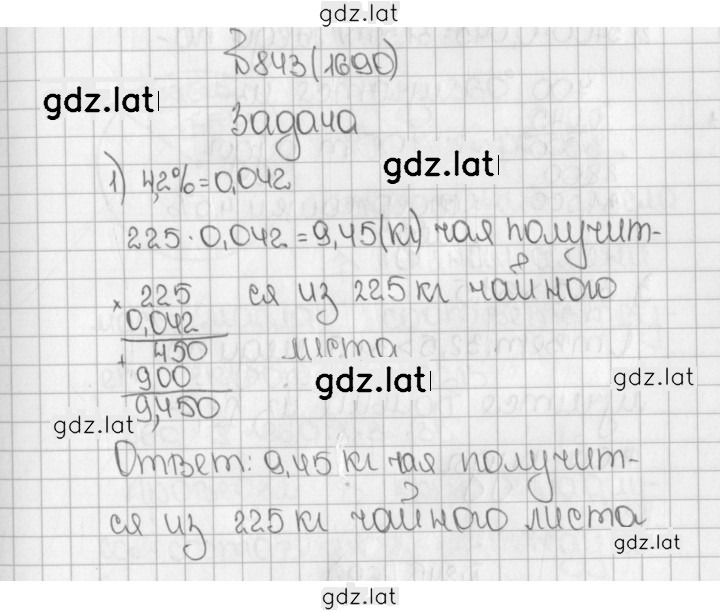 gdz.lat
№843(1690)
gdz.lat
Задача
gdz.lat
1) 4,2%=0,042
225·0,042=9,45(кг) чая получит-
ся из 225 кг чайного
листа
× 225
0,042
+ 450
900
9,450
gdz.lat
gdz.lat
gdz.lat
Ответ: 9,45 кг чая получит-
ся из 225 кг чайного листа
gdz.lat
gdz.lat